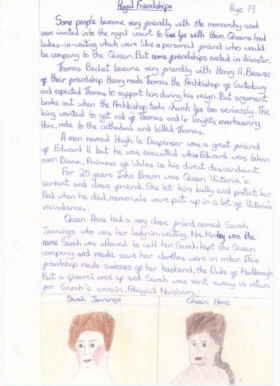 Royal Friendships
Page 19
Some people became very friendly with the monarchy and
were invited into the royal court to live with them. Queens had
ladies-in-waiting which were like a personal friend who would
be company to the Queen. But some friendships ended in disaster.
Thomas Becket became very friendly with Henry II. Because
of their friendship Henry made Thomas the Archbishop of Canterbury
and expected Thomas to support him during his reign. But argument
broke out when the Archbishop took church too seriously. The
king wanted to get rid of Thomas and knights, overhearing
this, rode to the cathedral and killed Thomas.
A man named Hugh le Despenser was a great friend
of Edward II but he was executed when Edward was taken
over. Diana, Princess of Wales is his direct descendant.
For 20 years John Brown was Queen Victoria's
servant and close friend. She let him bully and protect her.
And when he died, memorials were put up in a lot of Victoria's
residences.
Queen Anne had a very close friend named Sarah
Jennings who was her lady-in-waiting.
Sarah was allowed to call her Sarah kept the Queen
company and made sure her clothes were in order. This
friendship made success of her husband, the Duke of Marlborough.
But a quarrel was up and Sarah was sent away in return
for Sarah's cousin, Abigail
Sarah Jennings
Queen Anne